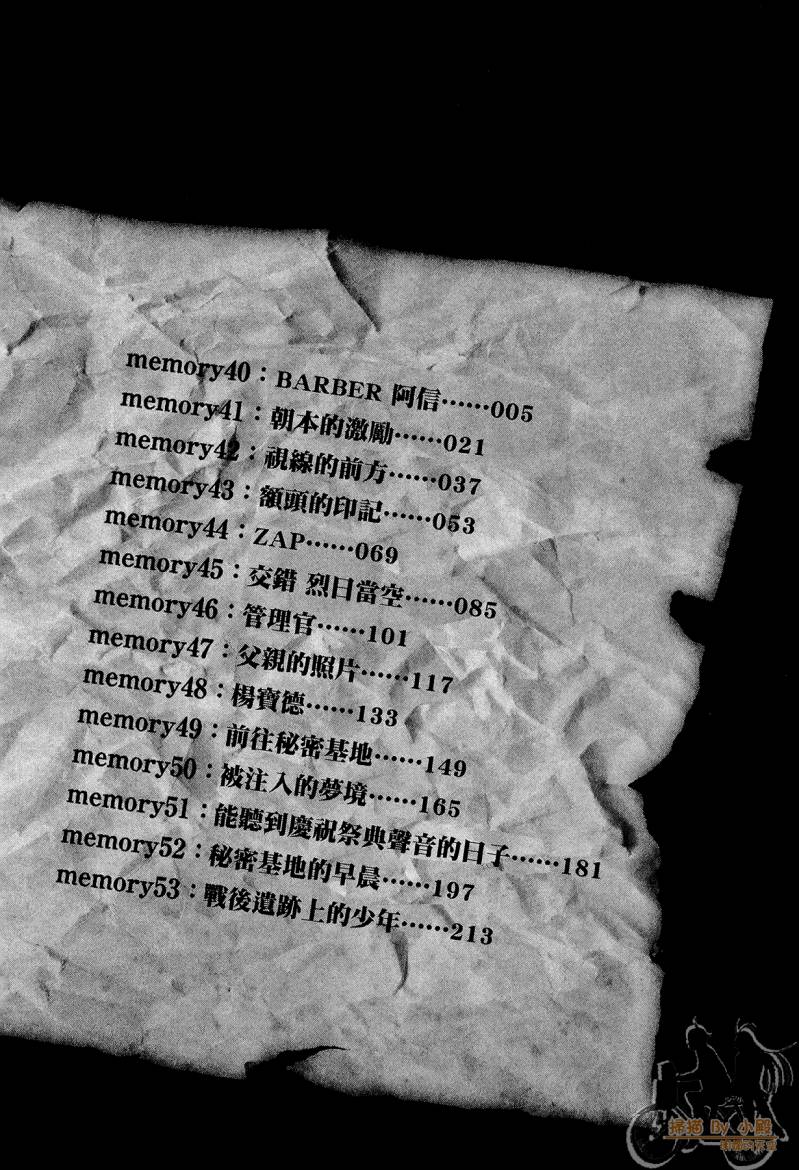 memory40：BARBER 阿信……005
memory41：朝本的激勵……021
memory42：視線的前方……037
memory43：額頭的印記……053
memory44：ZAP……069
memory45：交錯 烈日當空……085
memory46：管理官……101
memory47：父親的照片……117
memory48：楊寶德……133
memory49：前往秘密基地……149
memory50：被注入的夢境……165
memory51：能聽到慶祝祭典聲音的日子……181
memory52：秘密基地的早晨……197
memory53：戰後遺跡上的少年……213
掃描 By 小殿